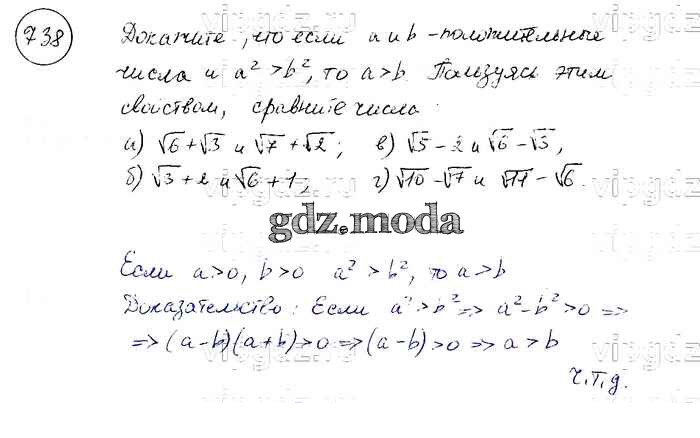 738
Докажите, что если a и b - положительные
числа и a² > b², то a > b. Пользуясь этим
свойством, сравните числа:
а) √6 + √3 и √7 + √2; в) √5 - 2 и √6 - √3;
б) √3 + 2 и √6 + 1; г) √10 - √7 и √11 - √6.
gdz.moda
Если a > 0, b > 0 a² > b², то a > b
Доказательство: Если a² > b² => a² - b² > 0 =>
=> (a - b)(a + b) > 0 => (a - b) > 0 => a > b
ч.т.д.